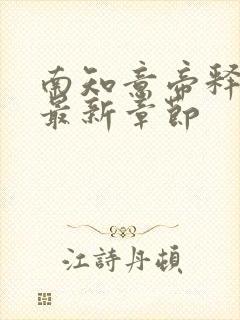 南知意帝释
最新章節
江詩丹頓